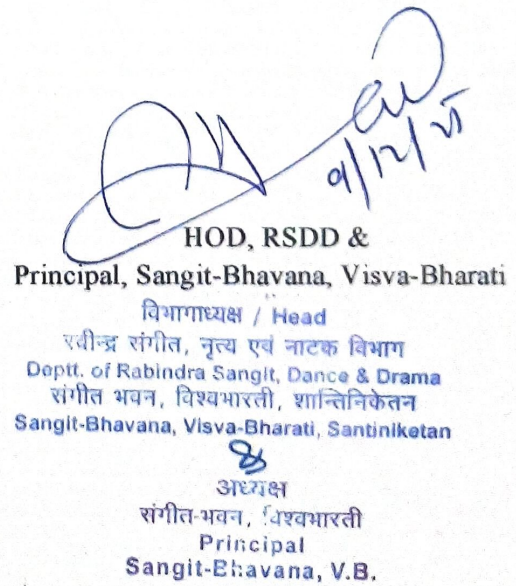 HOD, RSDD &
Principal, Sangit-Bhavana, Visva-Bharati
विभागाध्यक्ष / Head
रवीन्द्र संगीत, नृत्य एवं नाटक विभाग
Deptt. of Rabindra Sangit, Dance & Drama
संगीत भवन, विश्वभारती, शान्तिनिकेतन
Sangit-Bhavana, Visva-Bharati, Santiniketan
अध्यक्ष
संगीत-भवन, विश्वभारती
Principal
Sangit-Bhavana, V.B.